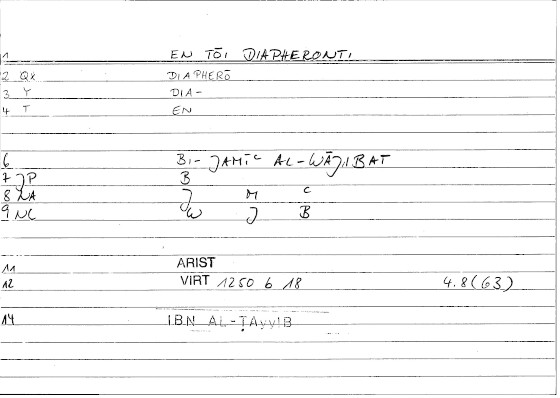 1 EN TŌI DIAPHERONTI
2 QX DIAPHERŌ
3 Y DIA-
4 T EN
6 BI- JAMĪʿ AL-WĀJIBAT
7 JP B
8 NA J M ʿ
9 NC W J B
11 ARIST
12 VIRT 1250 b 18 4.8(63)
14 IBN AL-ṬAyyIB